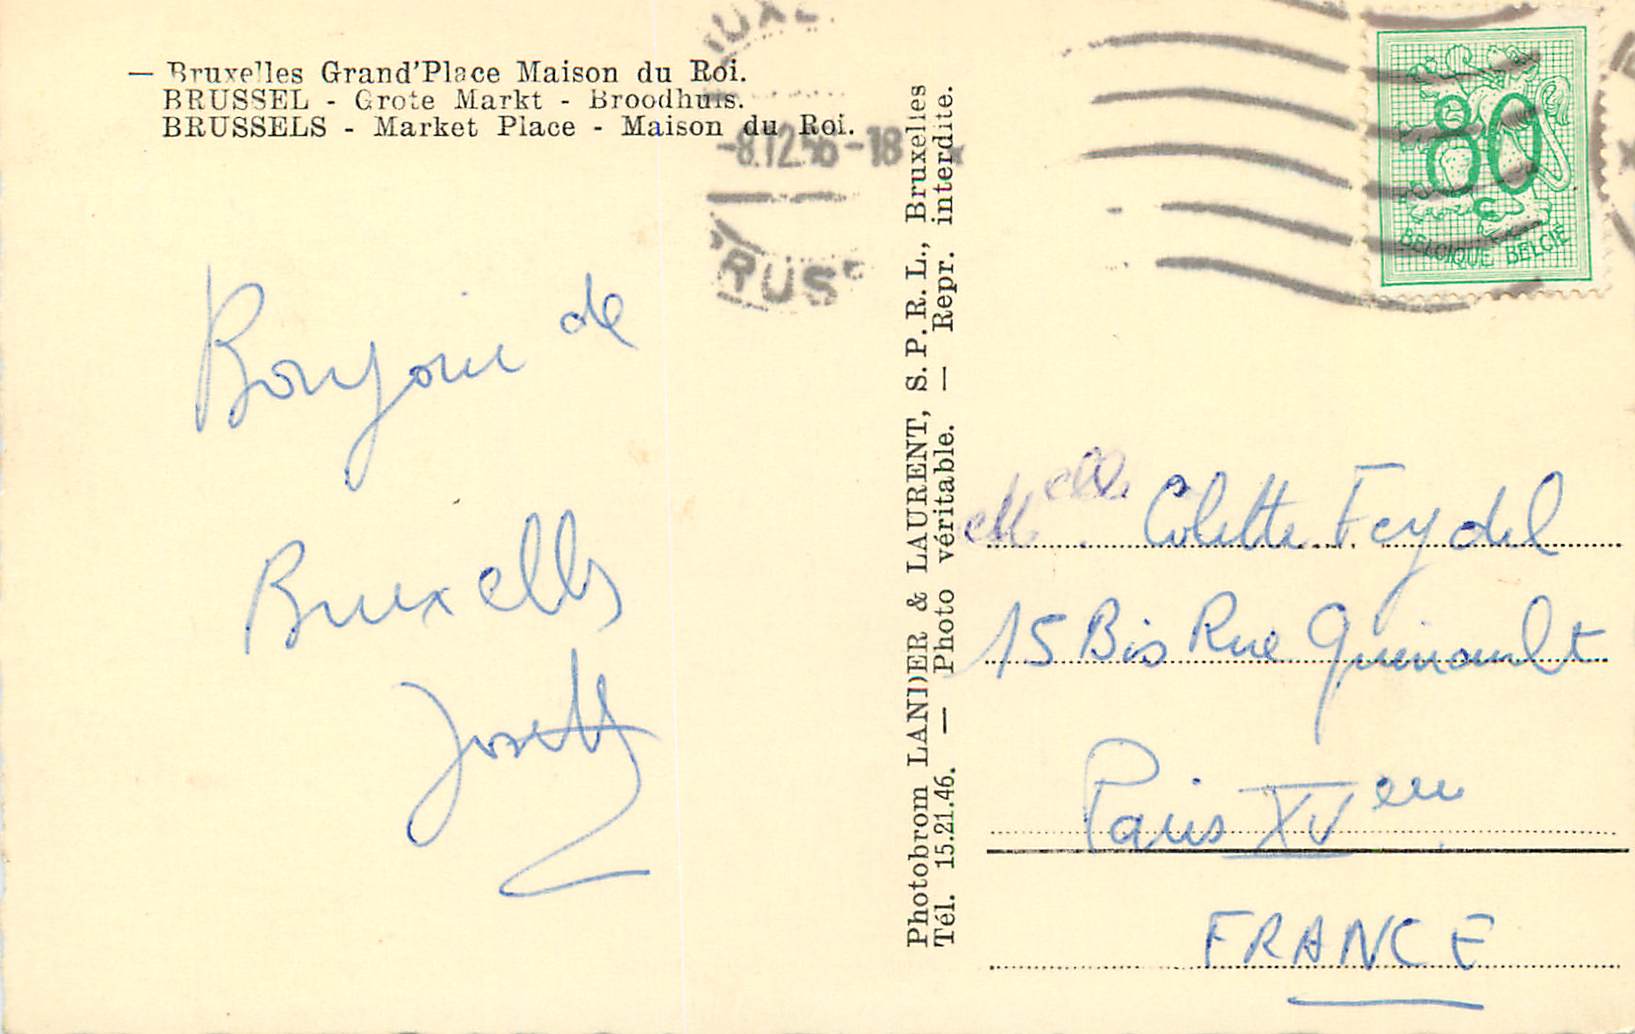 — Bruxelles Grand'Place Maison du Roi.
BRUSSEL - Grote Markt - Broodhuis.
BRUSSELS - Market Place - Maison du Roi.
-8.12.56-18
RUS
80
BELGIQUE BELGIË
Bonjour de
Bruxelles
Josette
Photobrom LANDIER & LAURENT, S. P. R. L., Bruxelles
Tél. 15.21.46. — Photo véritable. — Repr. interdite.
Melle Colette Feydel
15 Bis Rue Quinault
Paris XVem
FRANCE